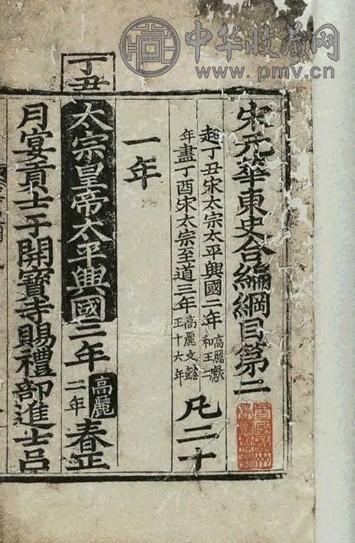 中华收藏网
www.pmv.cn
宋元華東史合編綱目第二
起丁丑宋太宗太平興國二年高麗獻和王二
年盡丁酉宋太宗至道三年高麗文懿王十六年
凡二十
一年
丁丑
太宗皇帝太平興國二年高麗二年春正
月宴貢士于開寶寺賜禮部進士呂